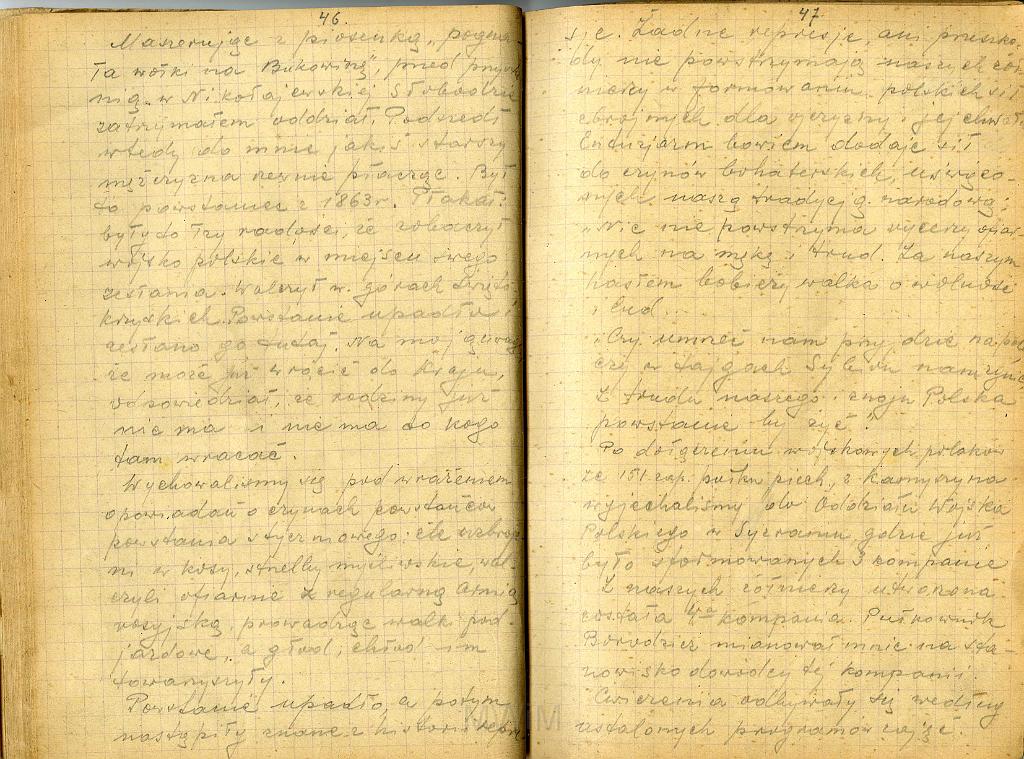 46.
Maszerując z piosenką „pogna-
ła wołki na Bukowinę", przed
nią w Nikołajewskiej Słobodzie
zatrzymałem oddział. Podszedł
wtedy do mnie jakiś starszy
mężczyzna rewnie płacząc. Był
to powstaniec z 1863 r. Płakał:
były to łzy radości, że zobaczył
wojsko polskie w miejscu swego
zesłania. Walczył w górach Święto-
krzyskich. Powstanie upadło i
zesłano go tutaj. Na moją uwagę
że może już wrócić do Kraju,
odpowiedział, że rodziny już
nie ma i nie ma do kogo
tam wracać.
Wychowaliśmy się pod wrażeniem
opowiadań o czynach powstańców
powstania styczniowego: źle uzbroje-
ni w kosy, strzelby myśliwskie, wal-
czyli ofiarnie z regularną armią
rosyjską, prowadząc walki pod-
jazdowe, a głód, chłód im
towarzyszyły.
Powstanie upadło, a potym
nastąpiły znane z historii
47
się. Żadne represje, ani przeszko-
dy nie powstrzymają naszych żoł-
nierzy w formowaniu polskich sił
zbrojnych dla ojczyzny i jej chwały
Entuzjazm bowiem dodaje sił
do czynów bohaterskich, uświęco-
nych naszą tradycją narodową:
„Nic nie powstrzyma rycerzy ofiar-
nych na mękę i trud. Za naszym
hasłem pobieży walka o wolność
i lud...
„Czy umrzeć nam przyjdzie na polu
czy w tajgach Sybiru nam gnić
Z trudu naszego i znoju Polska
powstanie by żyć".
Po dołączeniu wojskowych polaków
ze 151 zap. pułku piech. z Kamyszyna
wyjechaliśmy do Oddziału Wojska
Polskiego w Syzraniu, gdzie już
było sformowanych 3 kompanie
Z naszych żółnierzy utworzona
została 4-ta kompania. Pułkownik
mianował mnie na sta-
nowisko dowódcy tej kompanii.
Ćwiczenia odbywały się według
ustalonych programów zajęć.